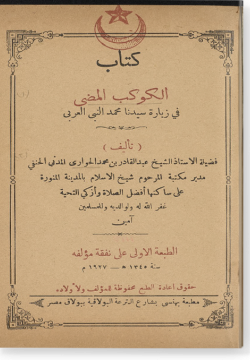 كتاب
الكوكب المضى
فى زيارة سيدنا محمد النبى العربى
( تأليف )
فضيلة الاستاذ الشيخ عبدالقادر بن محمد الحوارى المدنى الحنفى
مدير مكتبة المرحوم شيخ الاسلام بالمدينة المنورة
على ساكنها أفضل الصلاة وأزكى التحية
غفر الله له ولوالديه والمسلمين
آمين
الطبعة الاولى على نفقة مؤلفه
سنة ١٣٤٥ هـ — ١٩٢٧ م
حقوق اعادة الطبع محفوظة للمؤلف ولأولاده
مطبعة بهاسى بشارع الترعة البولاقية ببولاق مصر